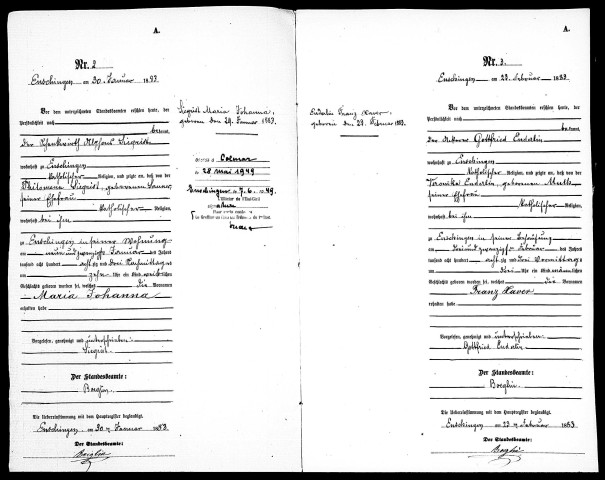 A.
Nr. 2
Enschingen am 30. Januar 1883.
Vor dem unterzeichneten Standesbeamten erschien heute, der
Persönlichkeit nach
be kannt,
der Schankwirth Alphons Siegrist
wohnhaft zu Enschingen
katholischer Religion, und zeigte an, daß von der
Philomena Siegrist, geborenen
seiner Ehefrau
katholischer Religion,
wohnhaft bei ihm
zu Enschingen in seiner Wohnung
am neun und zwanzigsten Januar des Jahres
tausend acht hundert acht zig und drei Nachmittags
um zehn Uhr ein Kind weib lichen
Geschlechts geboren worden sei, welches die Vornamen
Maria Johanna
erhalten habe
Vorgelesen, genehmigt und unterschrieben
Siegrist
Der Standesbeamte:
Boeglin
Die Uebereinstimmung mit dem Hauptregister beglaubigt.
Enschingen am 30. ten Januar 1883
Der Standesbeamte:
Boeglin
Siegrist Maria Johanna,
geboren den 29. Januar 1883.
Colmar
28 mai 1949
Enschingen 7. 6. 49
A.
Nr. 3.
Enschingen am 23. Februar 1883.
Vor dem unterzeichneten Standesbeamten erschien heute, der
Persönlichkeit nach
be kannt,
der Ackerer Gottfried Enderlin
wohnhaft zu Enschingen
katholischer Religion, und zeigte an, daß von der
Veronika Enderlin, geborenen Muth
seiner Ehefrau
katholischer Religion,
wohnhaft bei ihm
zu Enschingen in seiner Behausung
am drei und zwanzigsten Februar des Jahres
tausend acht hundert acht zig und drei Vormittags
um drei Uhr ein Kind männ lichen
Geschlechts geboren worden sei, welches die Vornamen
Franz Xaver
erhalten habe
Vorgelesen, genehmigt und unterschrieben
Gottfried Enderlin
Der Standesbeamte:
Boeglin
Die Uebereinstimmung mit dem Hauptregister beglaubigt.
Enschingen am 23. ten Februar 1883
Der Standesbeamte:
Boeglin
Enderlin Franz Xaver,
geboren den 23. Februar 1883.